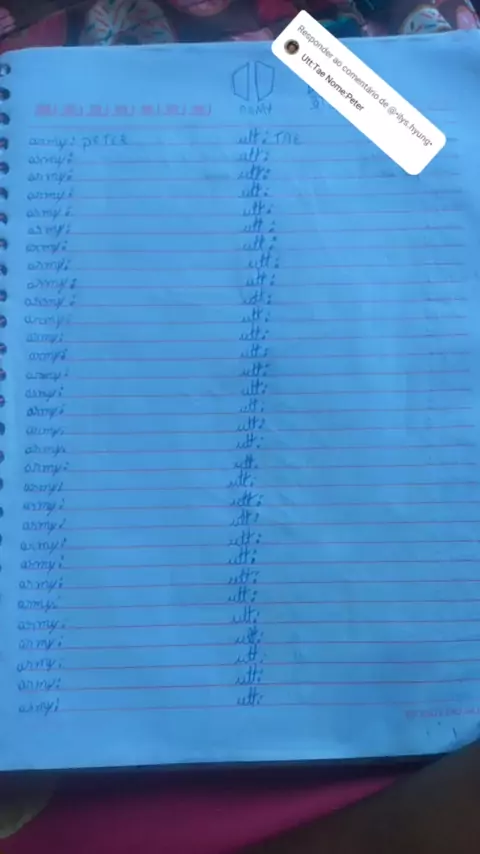 Responder ao comentário de @•ilys.hyung•
Utt:Tae Nome:Peter
army: PETER utt: TAE
army: utt:
army: utt:
army: utt:
army: utt:
army: utt:
army: utt:
army: utt:
army: utt:
army: utt:
army: utt:
army: utt:
army: utt:
army: utt:
army: utt:
army: utt:
army: utt:
army: utt:
army: utt:
army: utt:
army: utt:
army: utt:
army: utt:
army: utt:
army: utt:
army: utt:
army: utt:
army: utt:
army: utt:
army: utt:
army: utt: